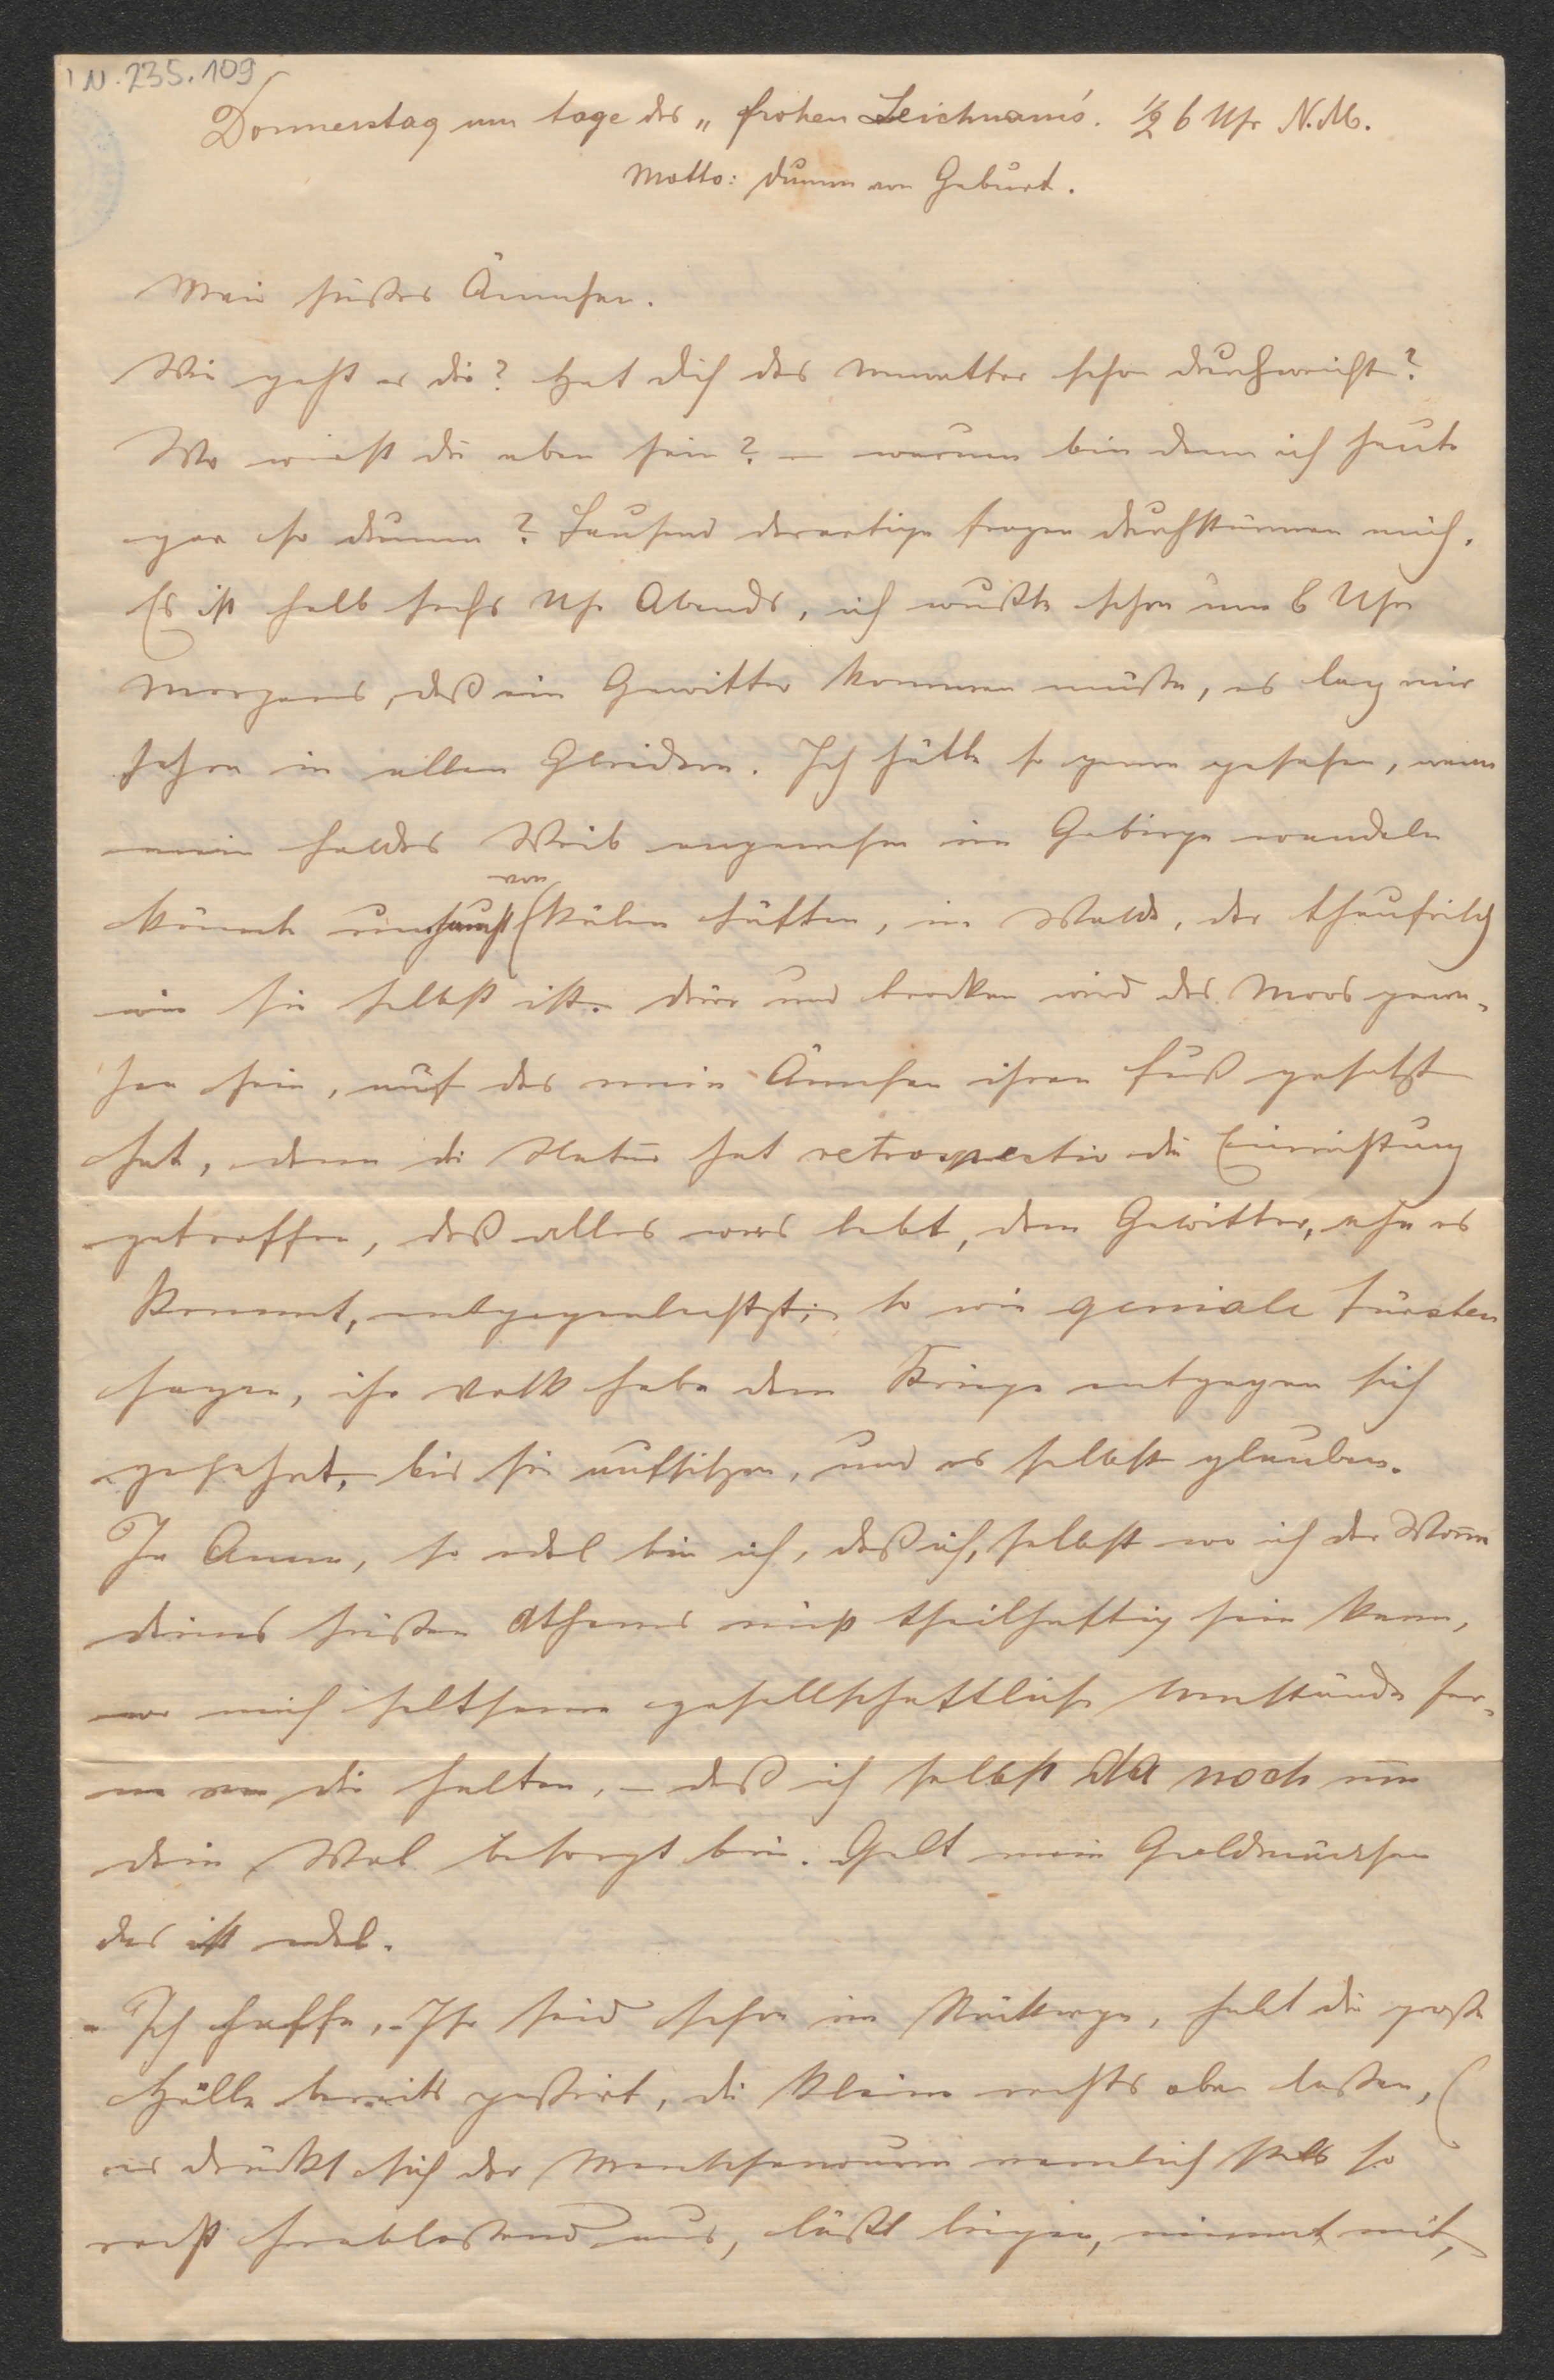 IN. 235.109
Donnerstag am tage des „frohen Leichnams. ½ 6 Uhr N.M.
Motto: dumm von Geburt.
Mein süßes Ännchen.
Wie geht es dir? Hat dich das Unwetter schon durchweicht?
Wo wirst du eben sein? – warum bin denn ich heute
gar so dumm? Tausend derartige fragen durchstürmen mich.
Es ist halb sechs Uhr Abends, ich wußte schon um 6 Uhr
Morgens, daß ein Gewitter kommen müße, es lag mir
schon in allen Gliedern. Ich hätte so gerne gesehen, wenn
mein holdes Weib angenehm im Gebirge wandeln
könnte umhaucht von külen Lüften, im Walde, der thaufrisch
wie sie selbst ist. dürr und trocken wird das Moos gewe-
sen sein, auf das mein Ännchen ihren fuß gesetzt
hat, denn die Natur hat retrospectiv die Einrichtung
getroffen, daß alles was lebt, dem Gewitter, ehe es
kommt, entgegenlechzt; so wie geniale fürsten
sagen, ihr Volk habe dem Kriege entgegen sich
gesehnt, bis sie aufsitzen, und es selbst glauben.
Ja Anna, so edel bin ich, daß ich, selbst wo ich der Wonne
deines süßen Athems nicht theilhaftig sein kann,
wo mich seltsame gesellschaftliche Umstände fer-
ne von dir halten, – daß ich selbst da noch um
dein Wol besorgt bin. Gelt mein Goldmäuschen
das ist edel.
– Ich hoffe, Ihr seid schon im , habt die große
Hölle bereits paßirt, die kleine rechts oben laßen, (
es drückt sich der Mensch nemlich stets so
recht herablaßend aus, läßt liegen, nimmt mit,